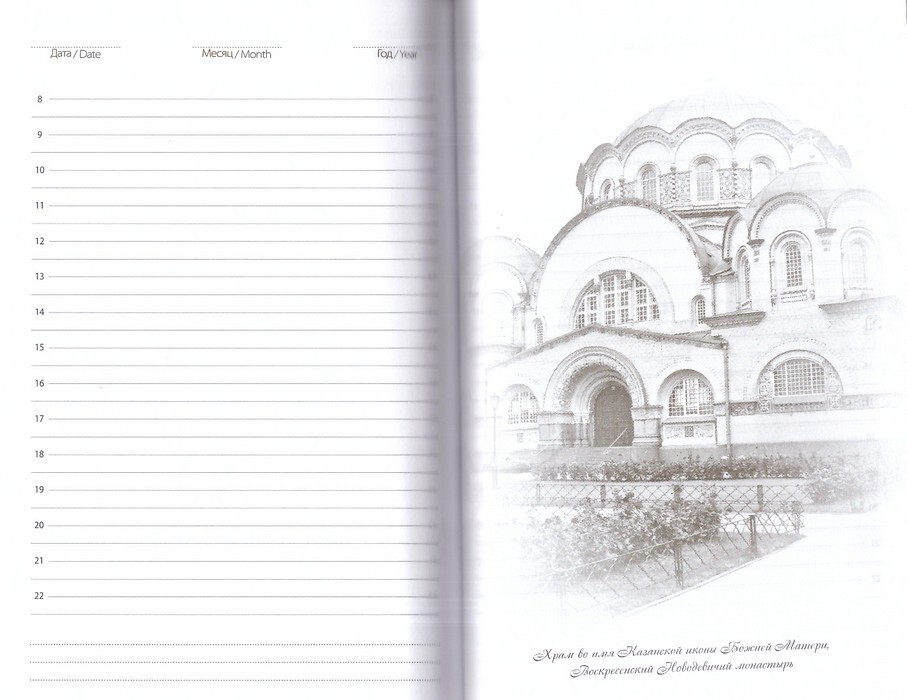 Дата / Date Месяц / Month Год / Year
8
9
10
11
12
13
14
15
16
17
18
19
20
21
22
Храм во имя Казанской иконы Божией Матери,
Воскресенский Новодевичий монастырь